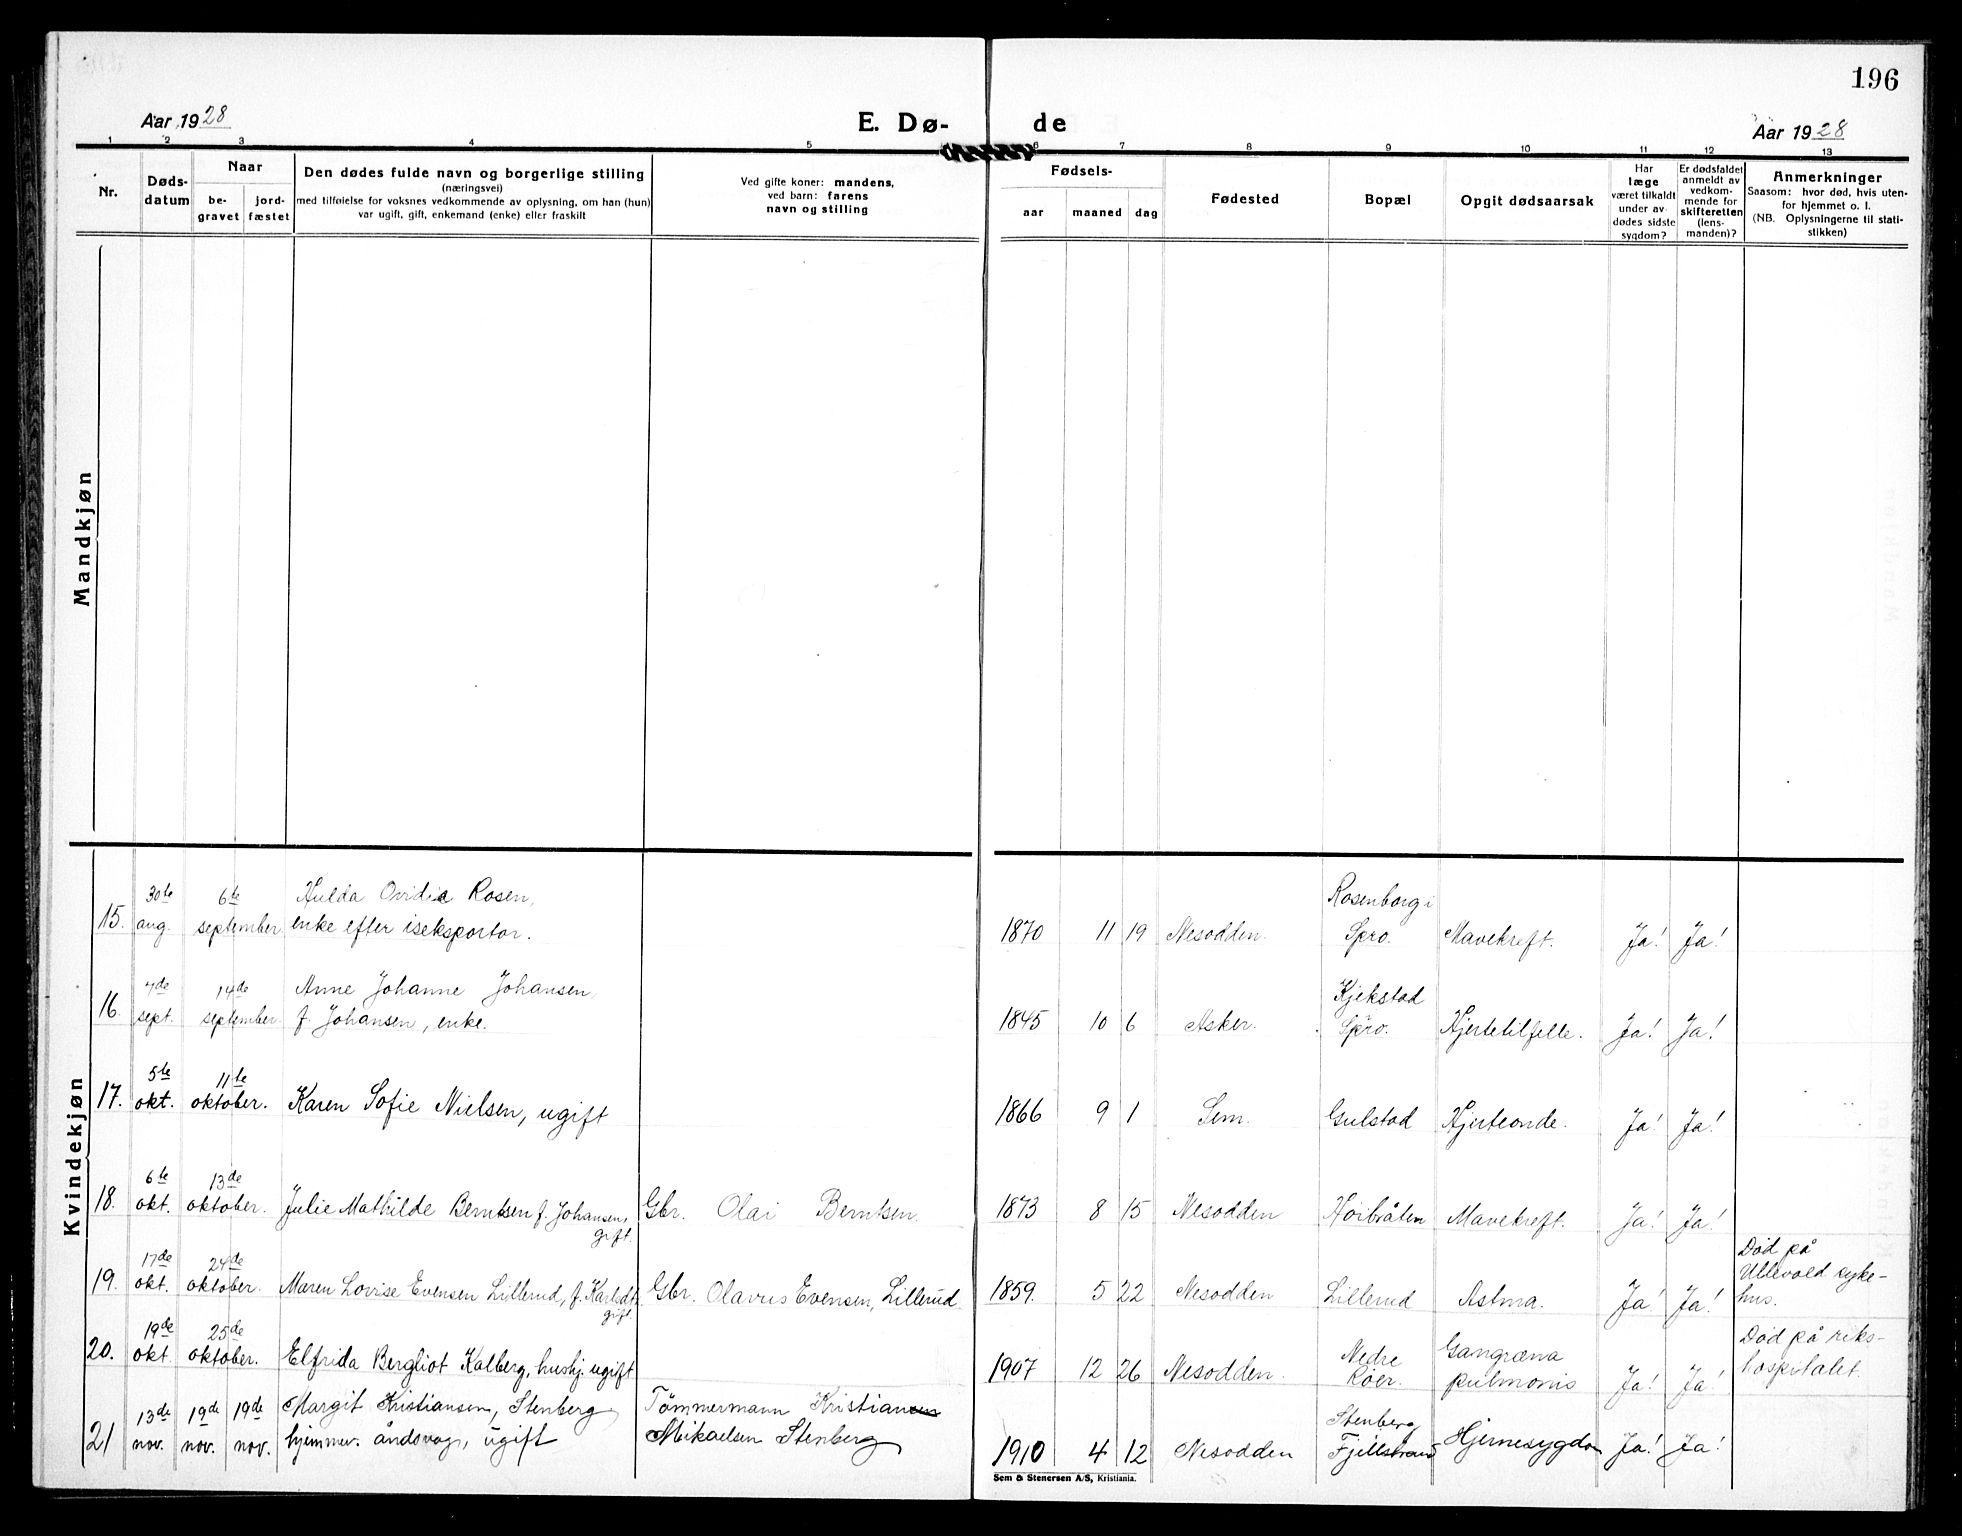 196
Aar 1928
E. Dø-
de
Aar 1928
1 2 3 4 5 6 7 8 9 10 11 12 13
Nr.
Døds-
datum
Naar
be-
gravet
jord-
fæstet
Den dødes fulde navn og borgerlige stilling
(næringsvei)
med tilføielse for voksnes vedkommende av oplysning, om han (hun)
var ugift, gift, enkemand (enke) eller fraskilt
Ved gifte koner: mandens,
ved barn: farens
navn og stilling
Fødsels-
aar maaned dag
Fødested
Bopæl
Opgit dødsaarsak
Har
læge
været tilkaldt
under av
dødes sidste
sygdom?
Er dødsfaldet
anmeldt av
vedkom-
mende for
skifteretten
(lens-
manden)?
Anmerkninger
Saasom: hvor død, hvis uten-
for hjemmet o. l.
(NB. Oplysningerne til stati-
stikken)
Mandkjøn
Kvindekjøn
30te 6te Hulda Ovidia Rosen, Rosenborg i
15. aug. september enke efter iseksportør. 1870 11 19 Nesodden. Spro. Mavekreft. Ja! Ja!
7de 14de Anne Johanne Johansen, Kjekstad
16. sept. september f. Johansen, enke. 1845 10 6 Asker. Spro. Hjertetilfelle. Ja! Ja!
5te 11te
17. okt. oktober. Karen Sofie Nielsen, ugift 1866 9 1 Sem. Gulstad Hjerteonde. Ja! Ja!
6te 13de
18. okt. oktober. Julie Mathilde Berntsen f. Johansen, Gbr. Olai Berntsen. 1873 8 15 Nesodden Høibråten Mavekreft. Ja! Ja!
gift.
17de 24de Død på
Ullevold syke-
19. okt. oktober. Maren Lovise Evensen Lillerud, f. Karlsdt. Gbr. Olavus Evensen, Lillerud 1859. 5 22 Nesodden Lillerud Astma. Ja! Ja! hus.
gift.
19de 25de Nedre Gangræna Død på riks-
20. okt. oktober. Elfrida Bergliot Kalberg, hushj. ugift 1907 12 26 Nesodden. Roer. pulmonis Ja! Ja! hospitalet.
13de 19de 19de Margit Kristiansen, Stenberg Tømmermann Kristiansen Stenberg
21 nov. nov. nov. hjemmev. åndsvag, ugift Mikaelsen Stenberg 1910 4 12 Nesodden Fjellstrand Hjernesygdom Ja! Ja!
Sem & Stenersen A/S, Kristiania.